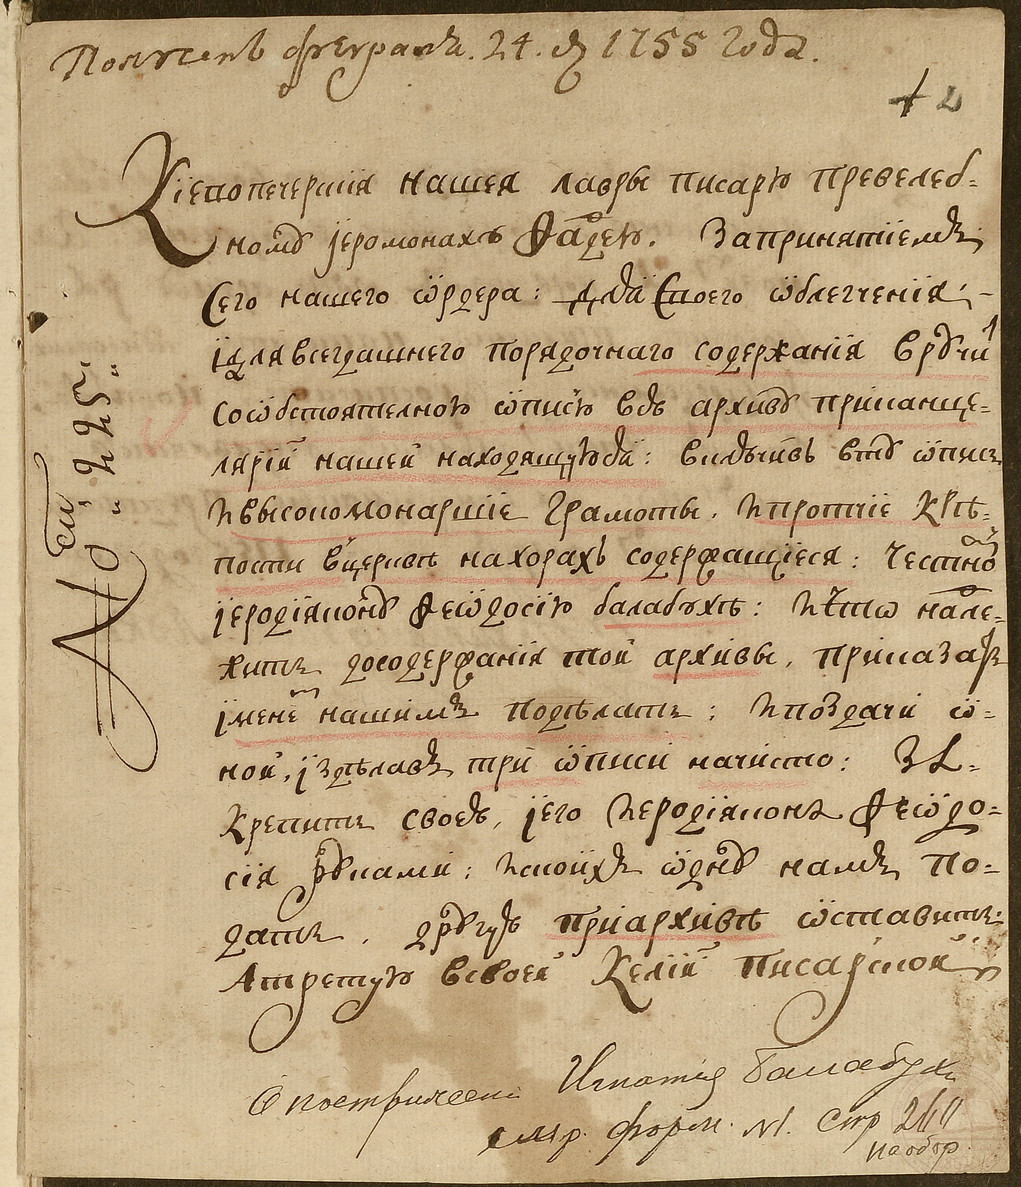 Полученъ февраля. 24. д 1755 года.
2
Кіевопечерскія нашея лавры писарю превелеб-
ному іеромонаху Фадею. Запринятіемъ
Сего нашего ѡрдера: для Своего ѡблегченія, -
ї для всегдашнего порядочнаго содержанія вручи
Сообстоятелною ѡписю всю архиву приканце-
ляріи нашей находящуюся: включивъ втую ѡпись
И высокомонаршіе Грамоты, И протчіе Крѣ-
пости вцерквѣ на хорахъ содержащіеся: Честному
іеродіякону Ѳеѡдосію балабухѣ: И что нале-
житъ до содержанія той архивы, приказать
імене нашимъ подѣлать; И поздачи ѡ-
ной, іздѣлавъ три ѡписи начисто: За-
Крепить своею, іего Иеродіякона Ѳеѡдо-
сія руками; И скоихъ ѡдну намъ по-
дать, другую приархивѣ ѡставить:
А третую всвоей Келій Писарской
№ 225
О пострижении Игнатія Балабухи
смр. форм. №1. Стр 260
на обор.